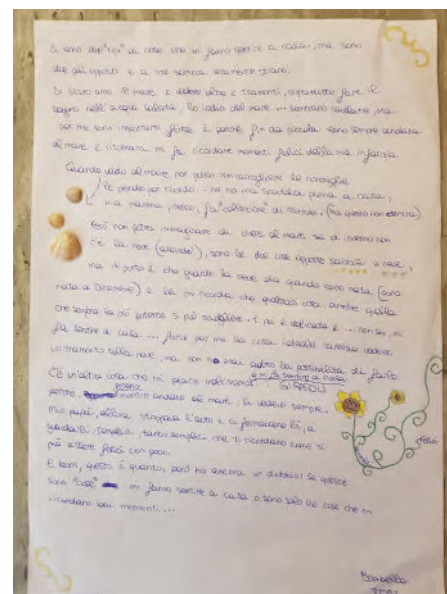 Ci sono due "tipi" di cose che mi fanno sentire a casa, ma sono
due poli opposti e a me sembra veramente strano!
Di sicuro amo il mare e vedere alba e tramonti, soprattutto fare il
bagno nell'acqua salata, l'odio del mare ... sembrano cavolate, ma
per me sono importanti forse è perché fin da piccola sono sempre andata
al mare e ritornarci mi fa ricordare momenti felici della mia infanzia
Quando vado al mare non posso non raccogliere le conchiglie
le prendo per ricordo ... ne ho una scatola piena a casa,
mia mamma, invece, fa "collezione" di
Però non potrei immaginare di vivere al mare se di inverno non
c'è la neve, sono le due cose opposte sabbia e neve,
ma il punto è che guardo la neve da quando sono nata (sono
nata a Dicembre) e lei mi ricorda che qualsiasi cosa anche quella
che sembra la più potente si può sciogliere. E poi è
fa sentire a casa ... forse per me la cosa ideale sarebbe vedere
un tramonto sulla neve, ma non ho mai avuto la possibilità di farlo.
C'è un'altra cosa che mi piace
e mi fa sentire a casa
GIRASOLI
perché, mentre andavo al mare, li vedevo sempre.
Mio papà, allora, stoppava l'auto e ci fermavamo lì, a
guardarli. Semplici, tanto semplici che ti ricordano come si
può essere felici con poco.
E boom, questo è quanto, però ho ancora un dubbio: se queste
sono "cose" mi fanno sentire a casa o sono solo le cose che mi
ricordano bei momenti ...